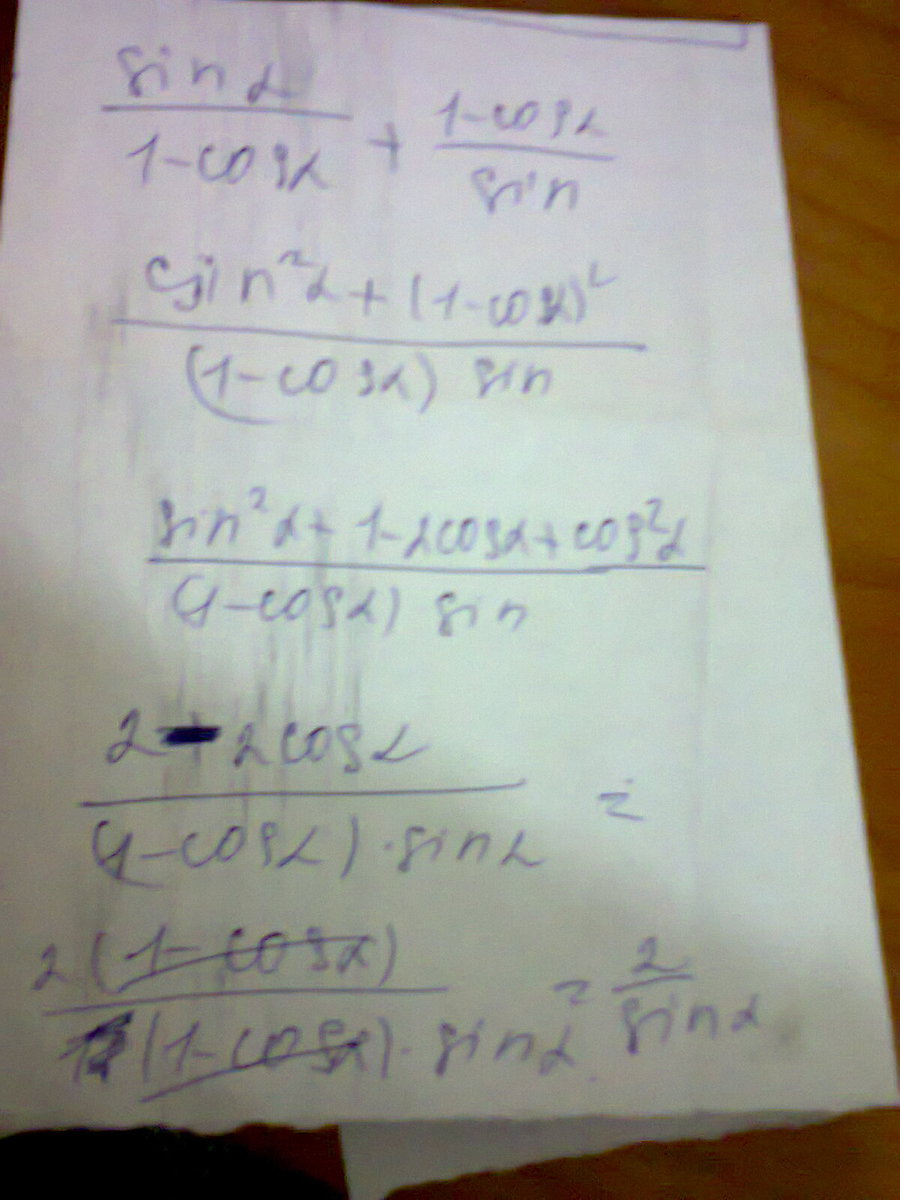 sin α / 1-cos α + 1-cos α / sin
sin²α + (1-cos α)² / (1-cos α) sin
sin²α + 1-2cos α + cos²α / (1-cos α) sin
2 - 2cos α / (1-cos α) · sin α =
2 (1-cos α) / (1-cos α) · sin α = 2 / sin α